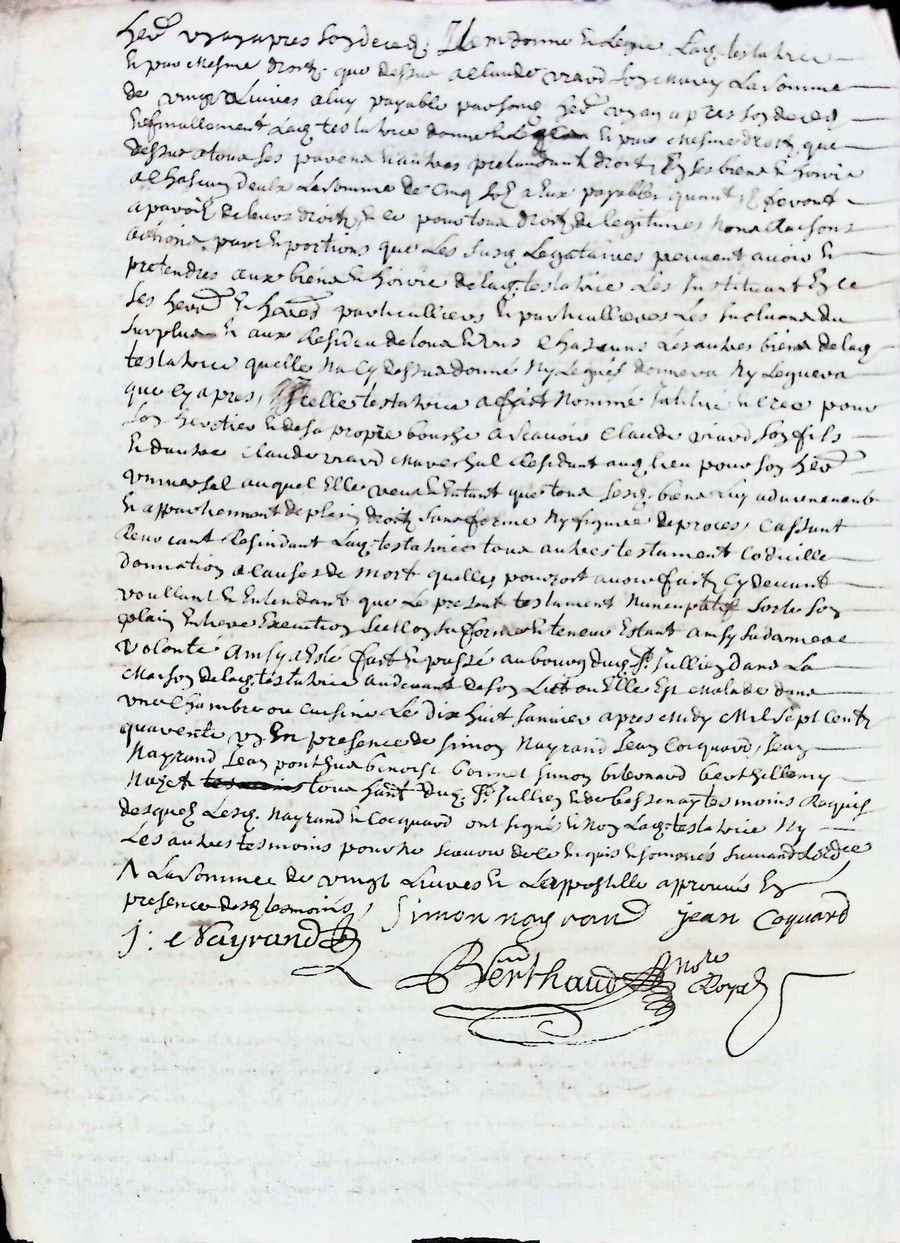 her. un an apres son deced. Item donne et Legue Lad. testatrice
et par mesme droit que dessus a Claude viard son mary La somme
de vingt Livres a luy payable par son her. un an apres son deced
et finallement Lad. testatrice donne et Legue et par mesme droit que
dessus a tous ses parens et autres pretendant droit en ses biens et hoirie
a chascun deulx La somme de cinq sols a eux payable quant ils feront
aparoir de leurs droits, et ce pour tous droits de legitimes noms raisons
actions, pars et portions que Les susd. Legataires peuvent avoir et
pretendres aux biens et hoirie de lad. testatrice Les Instituant en ce
ses hers. et heres. particulliers et particullieres Les Excluans du
surplus et aux Resideu de tous et uns chascuns Les autres biens de lad.
testatrice quelle na cy dessus donné ny Legués donnera ny Leguera
que cy apres, Icelle testatrice a fait nommé Institué et créé pour
son heretier et de sa propre bouche a scavoir Claude viard son fils
et dausse Claude viard mareschal Residant aud. lieu pour son her.
universel auquel Elle veut et Entant que tous sesd. biens Luy adviennent
et appartiennent de plain droit sans forme ny figure de proces, Cassant
Revocant Resindant Lad. testatrice tous autres testament codicille
donnation a cause de mort quelles pouroit avoir fait cy devant
voullant et Entendant que Le present testament nuncupatif sorte son
plain et Entiere Execution sellon sa forme et teneur Estant ainsy sa derniere
volonté ainsy a Esté fait et passé au bourg dud. St. Jullien dans La
maison de lad. testatrice au devant de son Lict ou Elle Est malade dans
une Chambre ou cuisine Le dix huit Janvier apres midy mil sept cent
quarente un En presence de Simon Nayrand Jean Cocquard, Jean
Nayrand Jean ponthus benoist bonnet Simon et Leonard berthellemy
Nazet tous hant. dud. St. Jullien et de bessenay tesmoins Requis
desquels Lesd. Nayrand et Cocquard ont signé et non Lad. testatrice ny
Les autres tesmoins pour ne scavoir de ce Enquis et sommés suivant Lordce
A La somme de vingt Livres et Lappostille aprouvée En
presence desd. tesmoins,
Simon nayrand jean Coquard
J: Nayrand
Berthaud nore
Royal